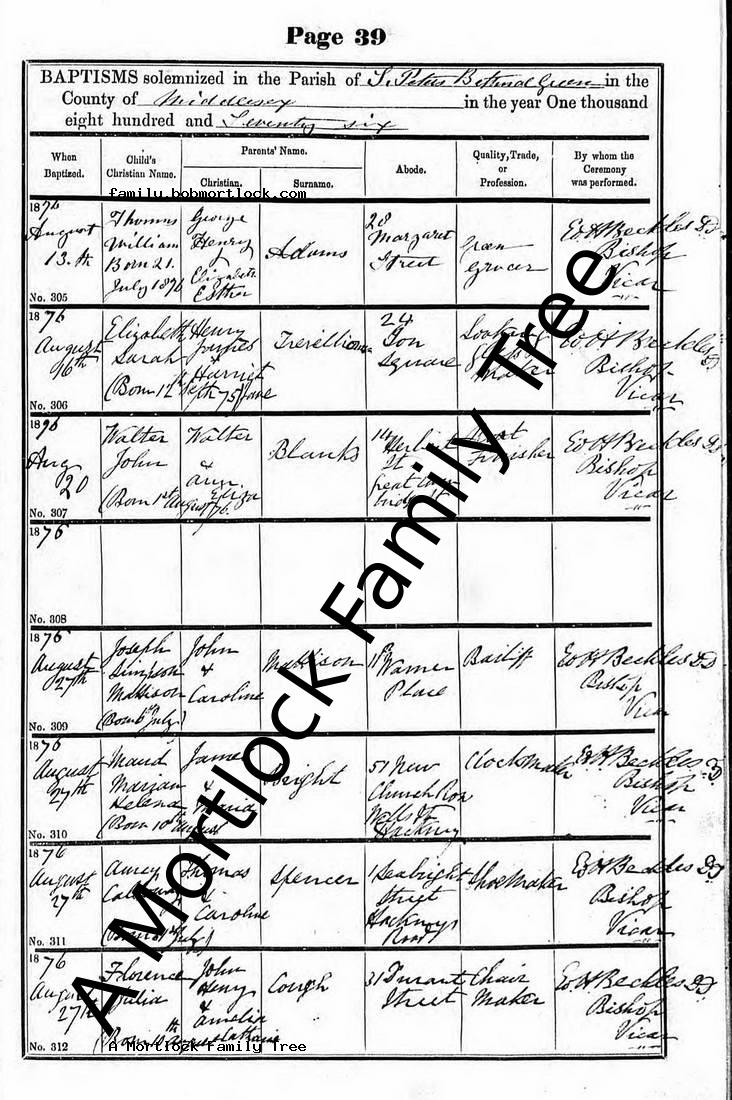 Page 39
BAPTISMS solemnized in the Parish of S. Peters Bethnal Green in the
County of Middlesex in the year One thousand
eight hundred and Seventy six
When Baptized.
Child's Christian Name.
Parents' Name.
Christian.
Surname.
Abode.
Quality, Trade, or Profession.
By whom the Ceremony was performed.
family.bobmortlock.com
1876
August
13.th
No. 305
Thomas
William
Born 21.
July 1876
George
Henry
&
Elizabeth
Esther
Adams
28
Margaret
Street
Green
Grocer
Ed H Beckles DD
Bishop
Vicar
1876
August
16th
No. 306
Elizabeth
Sarah
(Born 12th Septh 75)
Henry
James
&
Harriet
Jane
24
Ion
Square
Looking
Glass
Maker
Ed H Beckles DD
Bishop
Vicar
1876
Aug
20
No. 307
Walter
John
(Born 1st August 76.
Walter
&
Ann
Eliza
Blanks
14
St
Great
Finisher
Ed H Beckles DD
Bishop
Vicar
1876
No. 308
1876
August
27th
No. 309
Joseph
Simpson
Mattison
(Born 6th July)
John
&
Caroline
Mattison
Warner
Place
Bailiff
Ed H Beckles DD
Bishop
Vicar
1876
August
27th
No. 310
Maud
Marian
Helena
(Born 10th August
James
&
Maria
51 New
Church Row
Hackney
Clock Maker
Ed H Beckles DD
Bishop
Vicar
1876
August
27th
No. 311
Thomas
&
Caroline
Spencer
1 Seabright
Street
Hackney
Road
Shoe Maker
Ed H Beckles DD
Bishop
Vicar
1876
August
27th
No. 312
Florence
Julia
(Born 10th August
John
Henry
&
Amelia
Catharine
Cough
31 Durant
Street
Chair
Maker
Ed H Beckles DD
Bishop
Vicar
A Mortlock Family Tree
A Mortlock Family Tree